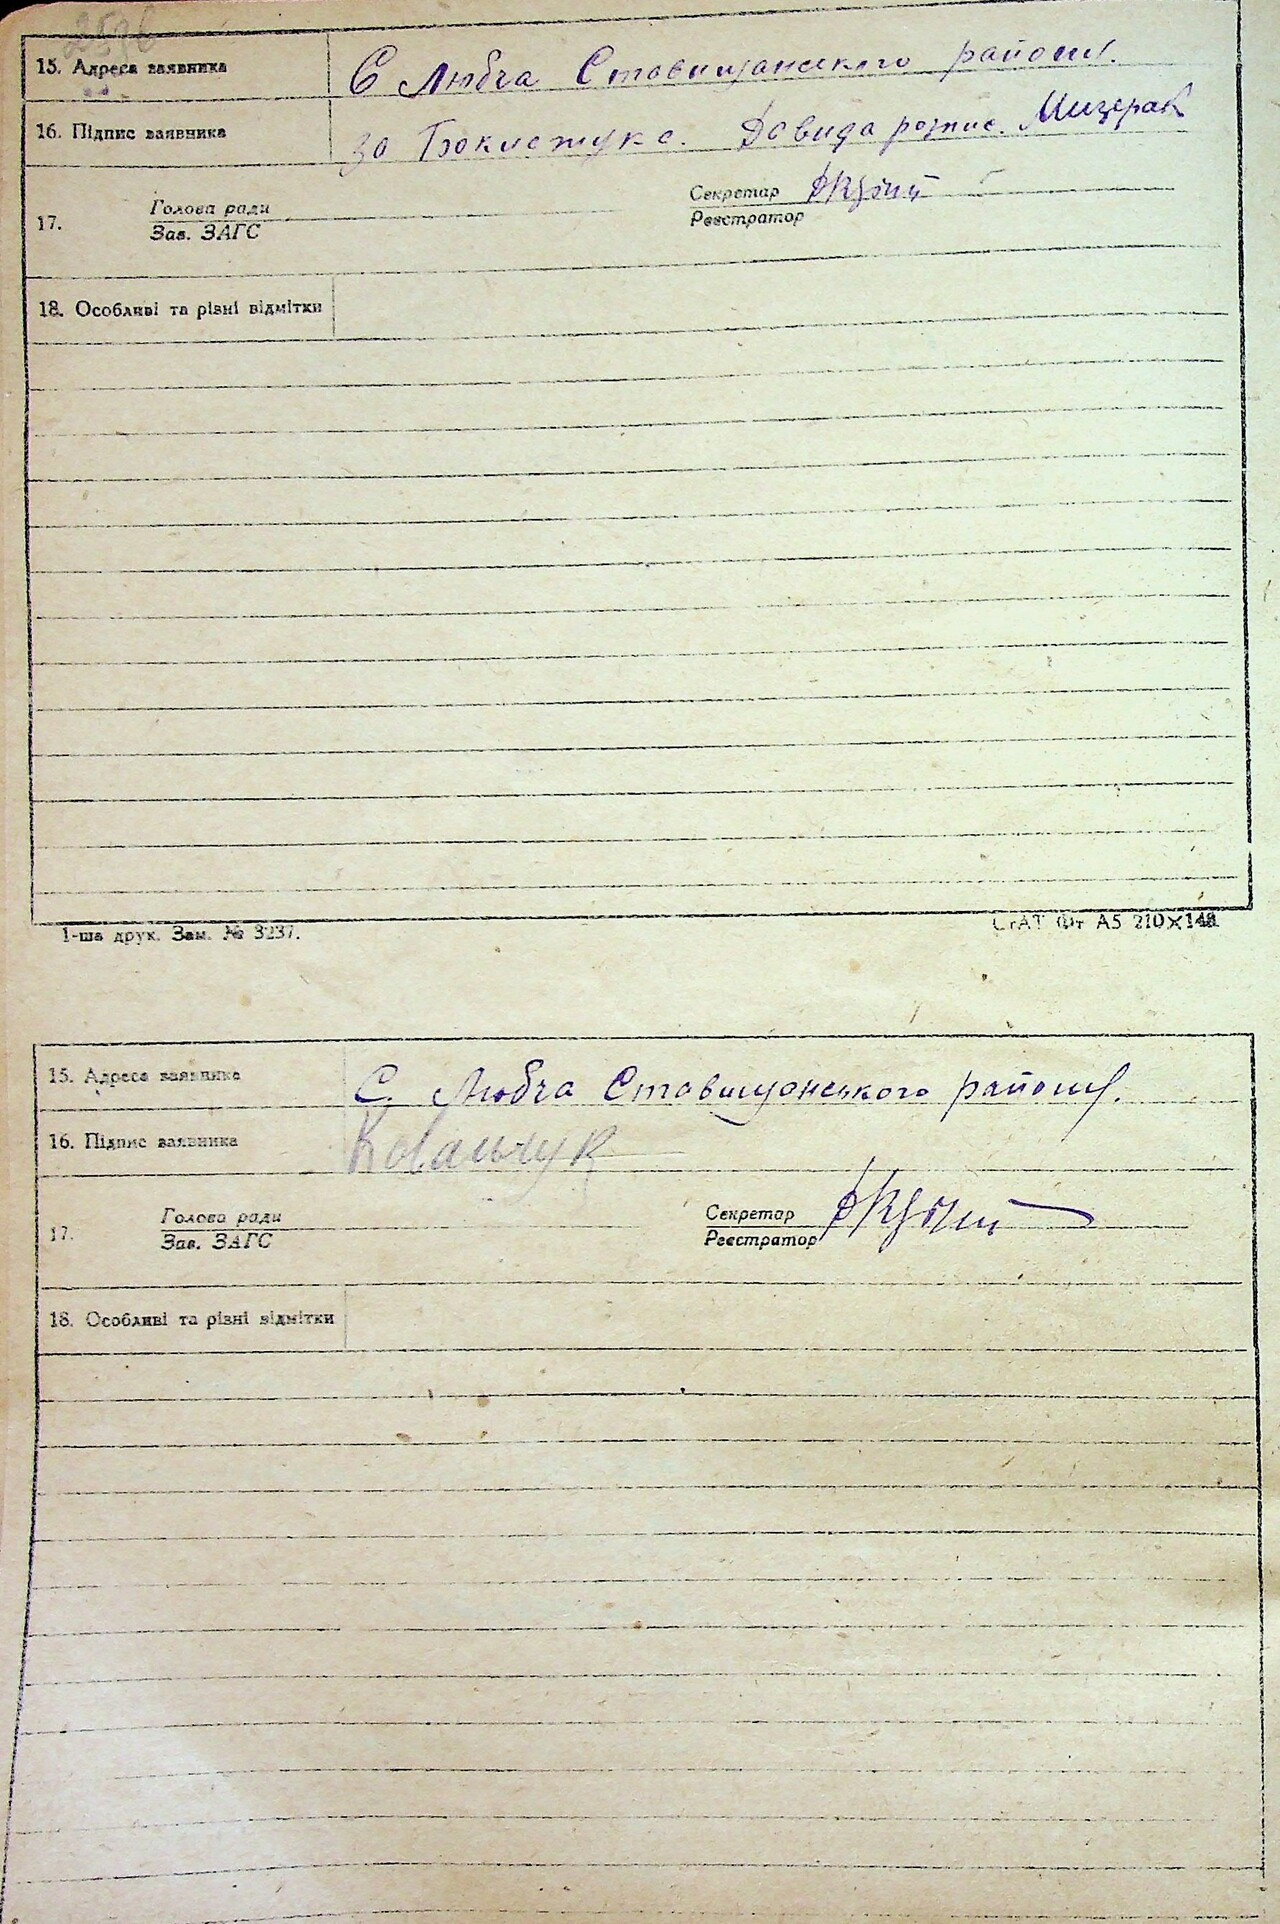 15. Адреса заявника С Любча Ставищанського району.
16. Підпис заявника за Довида розпис. Мизерак
17. Голова ради Секретар
Зав. ЗАГС Реєстратор
18. Особливі та різні відмітки
1-ша друк. Зам. № 3237. СтАТ Фт А5 210×148
15. Адреса заявника С. Любча Ставищанського району.
16. Підпис заявника Ковальчук
17. Голова ради Секретар
Зав. ЗАГС Реєстратор
18. Особливі та різні відмітки